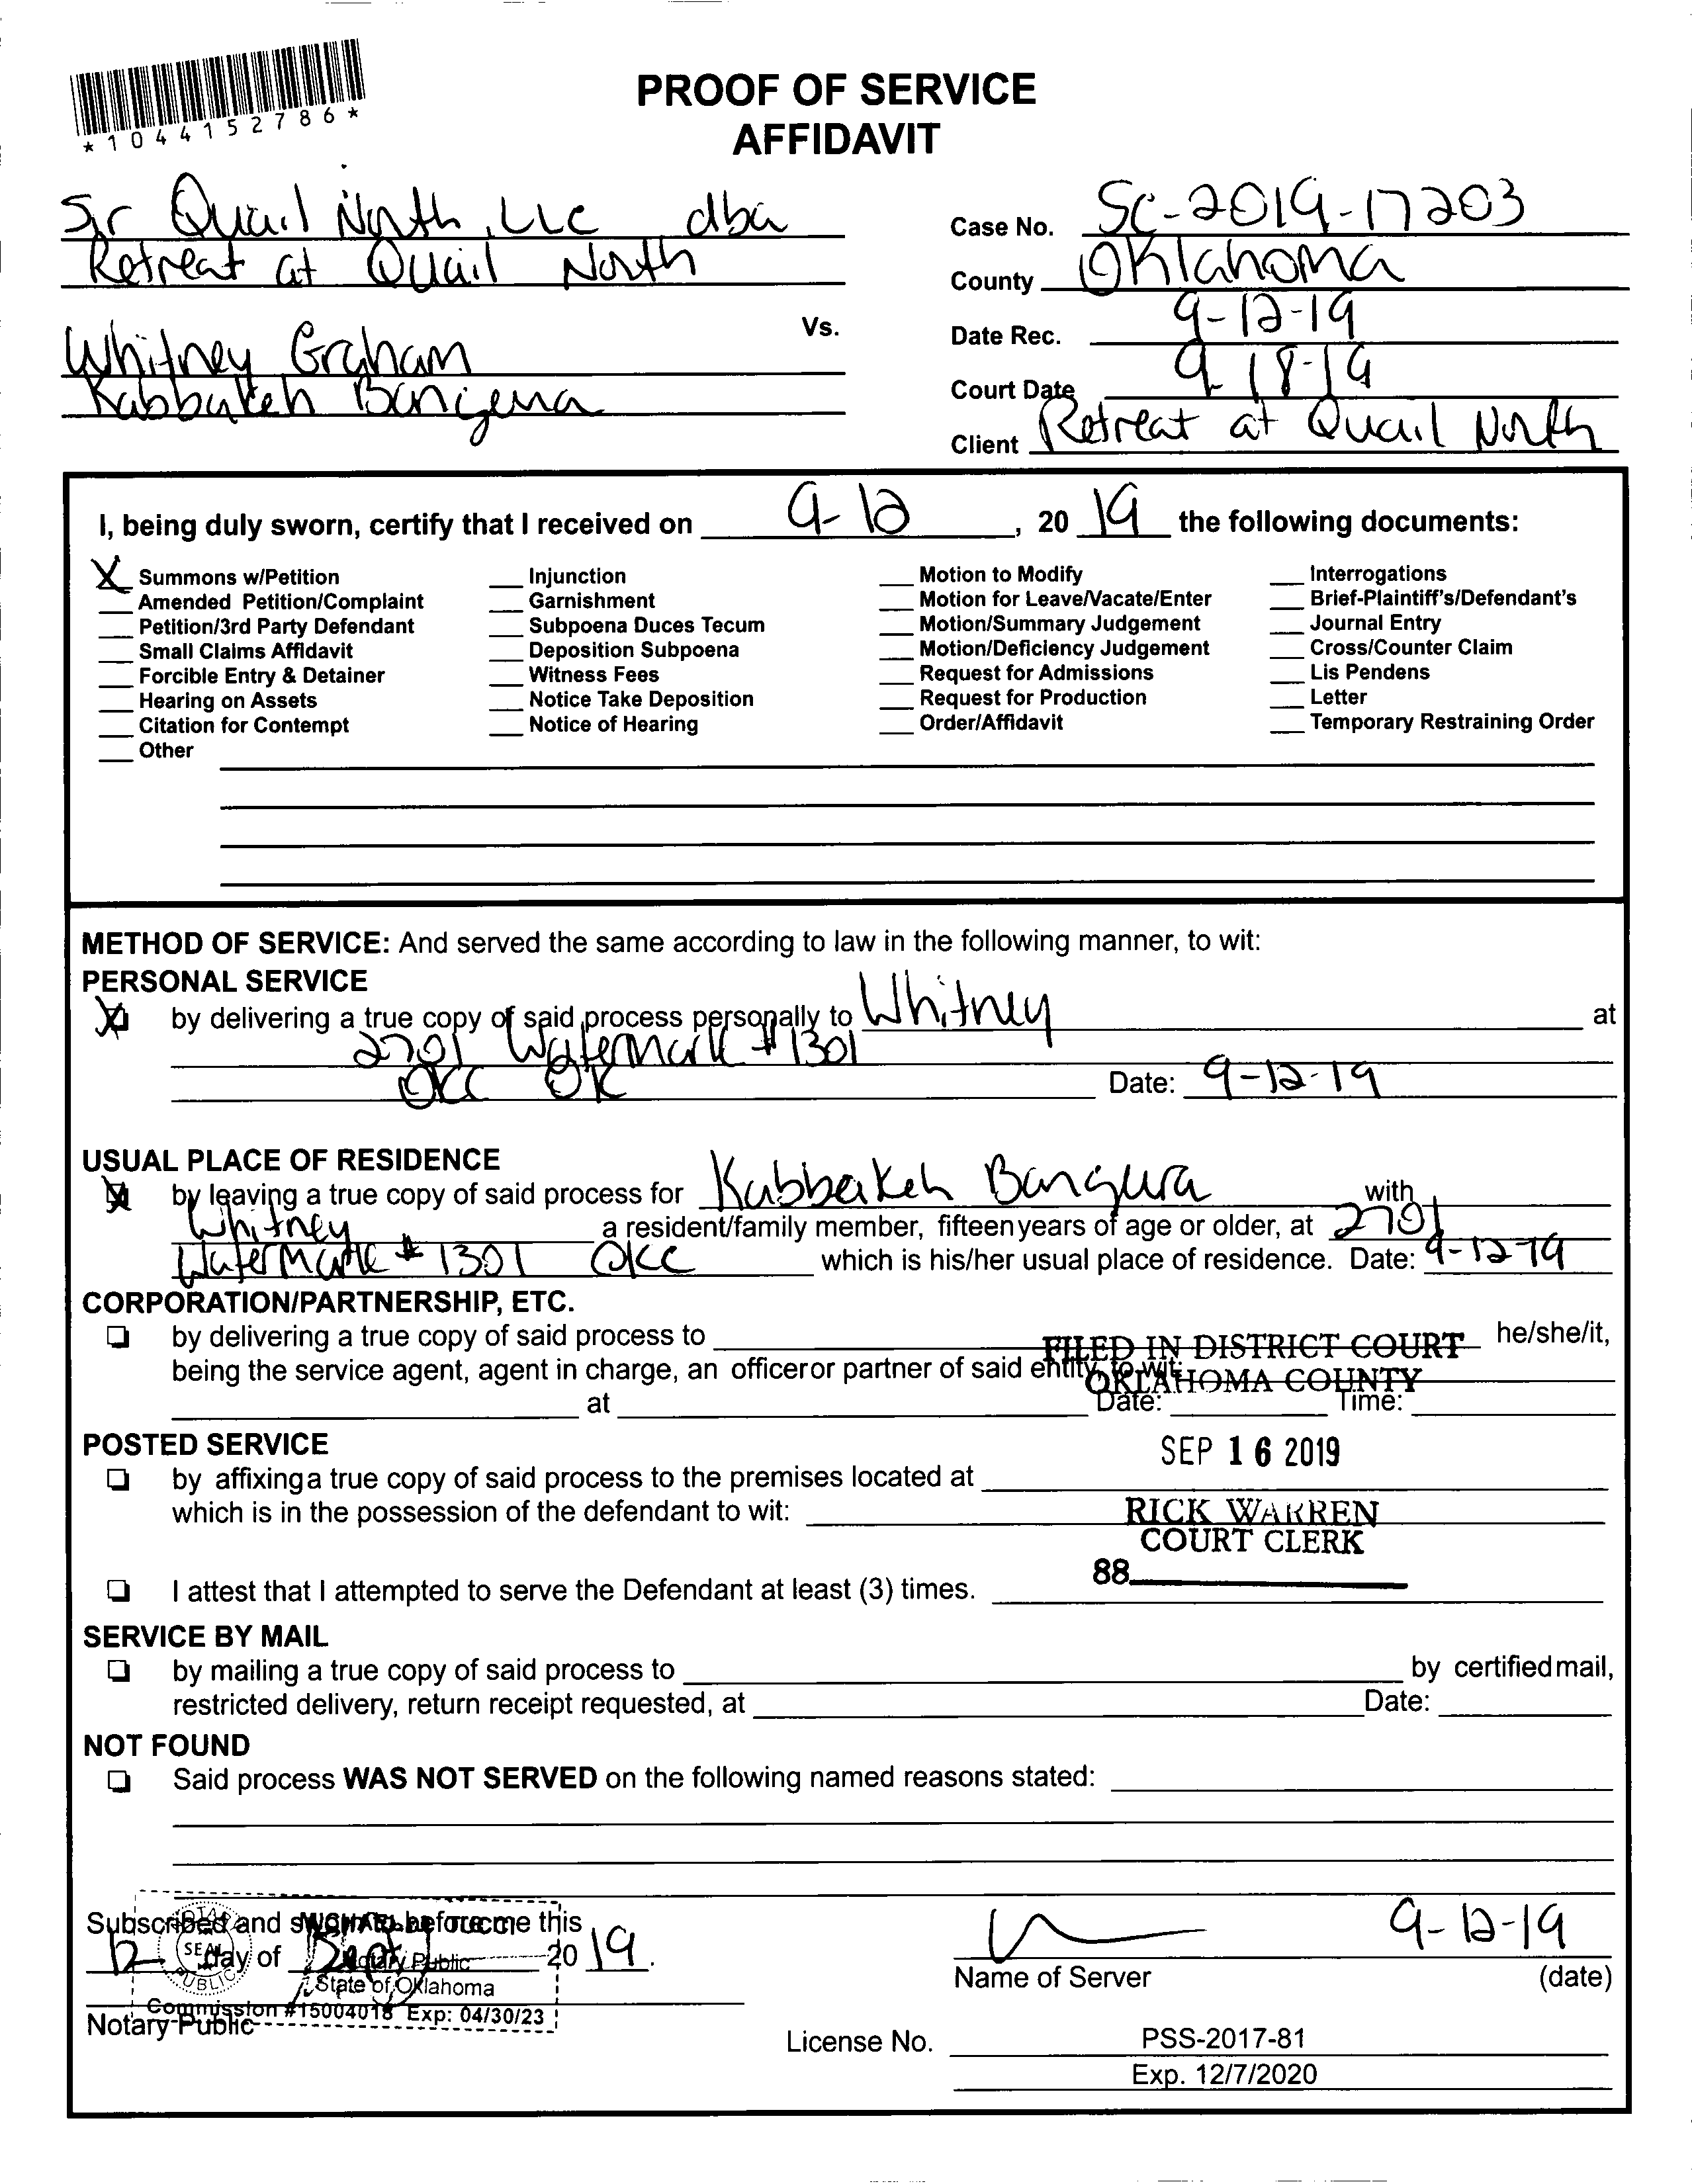 *1044152786*
PROOF OF SERVICE
AFFIDAVIT
Sr Quail North, LLC dba
Retreat at Quail North
Vs.
Whitney Graham
Kabbakeh Bangura
Case No. SC-2019-17203
County Oklahoma
Date Rec. 9-12-19
Court Date 9-18-19
Client Retreat at Quail North
I, being duly sworn, certify that I received on 9-12, 2019 the following documents:
X Summons w/Petition
__ Amended Petition/Complaint
__ Petition/3rd Party Defendant
__ Small Claims Affidavit
__ Forcible Entry & Detainer
__ Hearing on Assets
__ Citation for Contempt
__ Other
__ Injunction
__ Garnishment
__ Subpoena Duces Tecum
__ Deposition Subpoena
__ Witness Fees
__ Notice Take Deposition
__ Notice of Hearing
__ Motion to Modify
__ Motion for Leave/Vacate/Enter
__ Motion/Summary Judgement
__ Motion/Deficiency Judgement
__ Request for Admissions
__ Request for Production
__ Order/Affidavit
__ Interrogations
__ Brief-Plaintiff's/Defendant's
__ Journal Entry
__ Cross/Counter Claim
__ Lis Pendens
__ Letter
__ Temporary Restraining Order
METHOD OF SERVICE: And served the same according to law in the following manner, to wit:
PERSONAL SERVICE
X by delivering a true copy of said process personally to Whitney at
2701 Watermark #1301
OKC OK Date: 9-12-19
USUAL PLACE OF RESIDENCE
X by leaving a true copy of said process for Kabbakeh Bangura with
Whitney a resident/family member, fifteen years of age or older, at 2701
Watermark #1301 OKC which is his/her usual place of residence. Date: 9-12-19
CORPORATION/PARTNERSHIP, ETC.
❑ by delivering a true copy of said process to he/she/it,
being the service agent, agent in charge, an officer or partner of said entity, to wit:
at Date: Time:
FILED IN DISTRICT COURT
OKLAHOMA COUNTY
SEP 16 2019
RICK WARREN
COURT CLERK
88
POSTED SERVICE
❑ by affixing a true copy of said process to the premises located at
which is in the possession of the defendant to wit:
❑ I attest that I attempted to serve the Defendant at least (3) times.
SERVICE BY MAIL
❑ by mailing a true copy of said process to by certified mail,
restricted delivery, return receipt requested, at Date:
NOT FOUND
❑ Said process WAS NOT SERVED on the following named reasons stated:
Subscribed and sworn to before me this
12 day of Sept 2019.
Notary Public
SEAL
Notary Public
State of Oklahoma
Commission #15004018 Exp: 04/30/23
9-12-19
Name of Server (date)
License No. PSS-2017-81
Exp. 12/7/2020